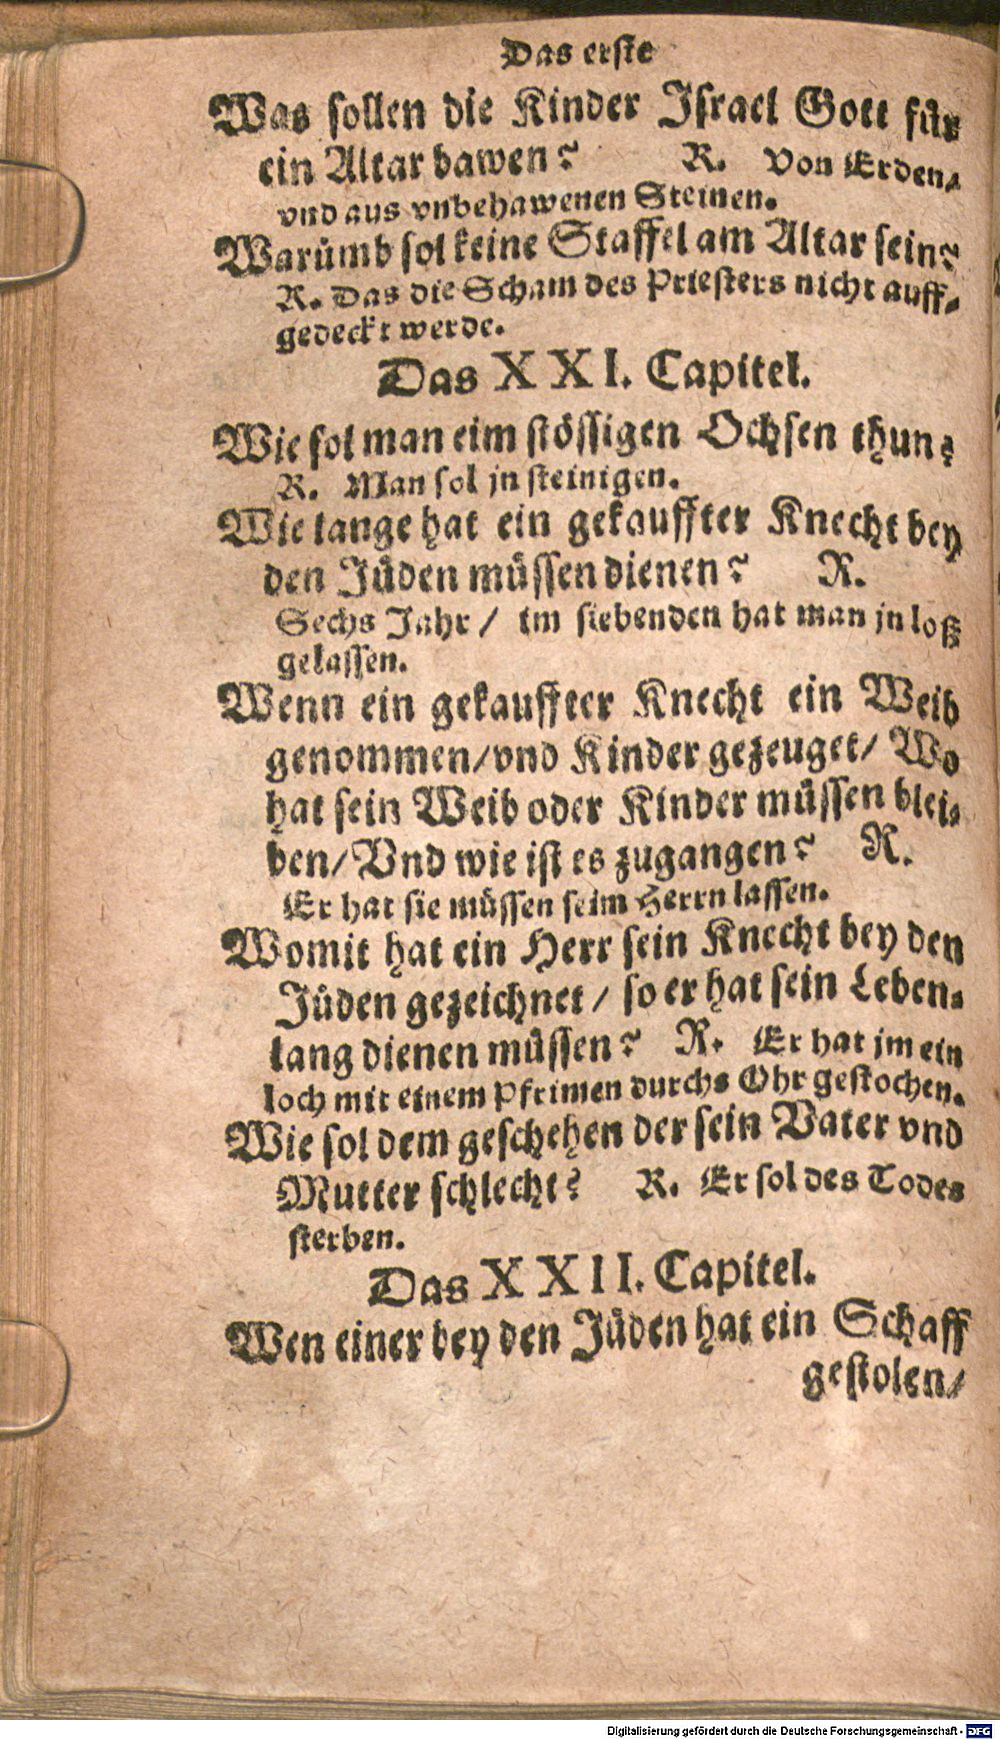 Das erste
Was sollen die Kinder Israel Gott für
ein Altar bawen? R. Von Erden,
vnd aus vnbehawenen Steinen.
Warümb sol keine Staffel am Altar sein?
R. Das die Scham des Priesters nicht auff-
gedeckt werde.
Das XXI. Capitel.
Wie sol man eim stössigen Ochsen thun?
R. Man sol jn steinigen.
Wie lange hat ein gekauffter Knecht bey
den Jüden müssen dienen? R.
Sechs Jahr / im siebenden hat man jn loß
gelassen.
Wenn ein gekauffter Knecht ein Weib
genommen/vnd Kinder gezeuget/ Wo
hat sein Weib oder Kinder müssen blei-
ben/Vnd wie ist es zugangen? R.
Er hat sie müssen seim Herrn lassen.
Womit hat ein Herr sein Knecht bey den
Jüden gezeichnet / so er hat sein Leben-
lang dienen müssen? R. Er hat jm ein
loch mit einem Pfrimen durchs Ohr gestochen.
Wie sol dem geschehen der sein Vater vnd
Mutter schlecht? R. Er sol des Todes
sterben.
Das XXII. Capitel.
Wen einer bey den Jüden hat ein Schaff
gestolen/
Digitalisierung gefördert durch die Deutsche Forschungsgemeinschaft - DFG